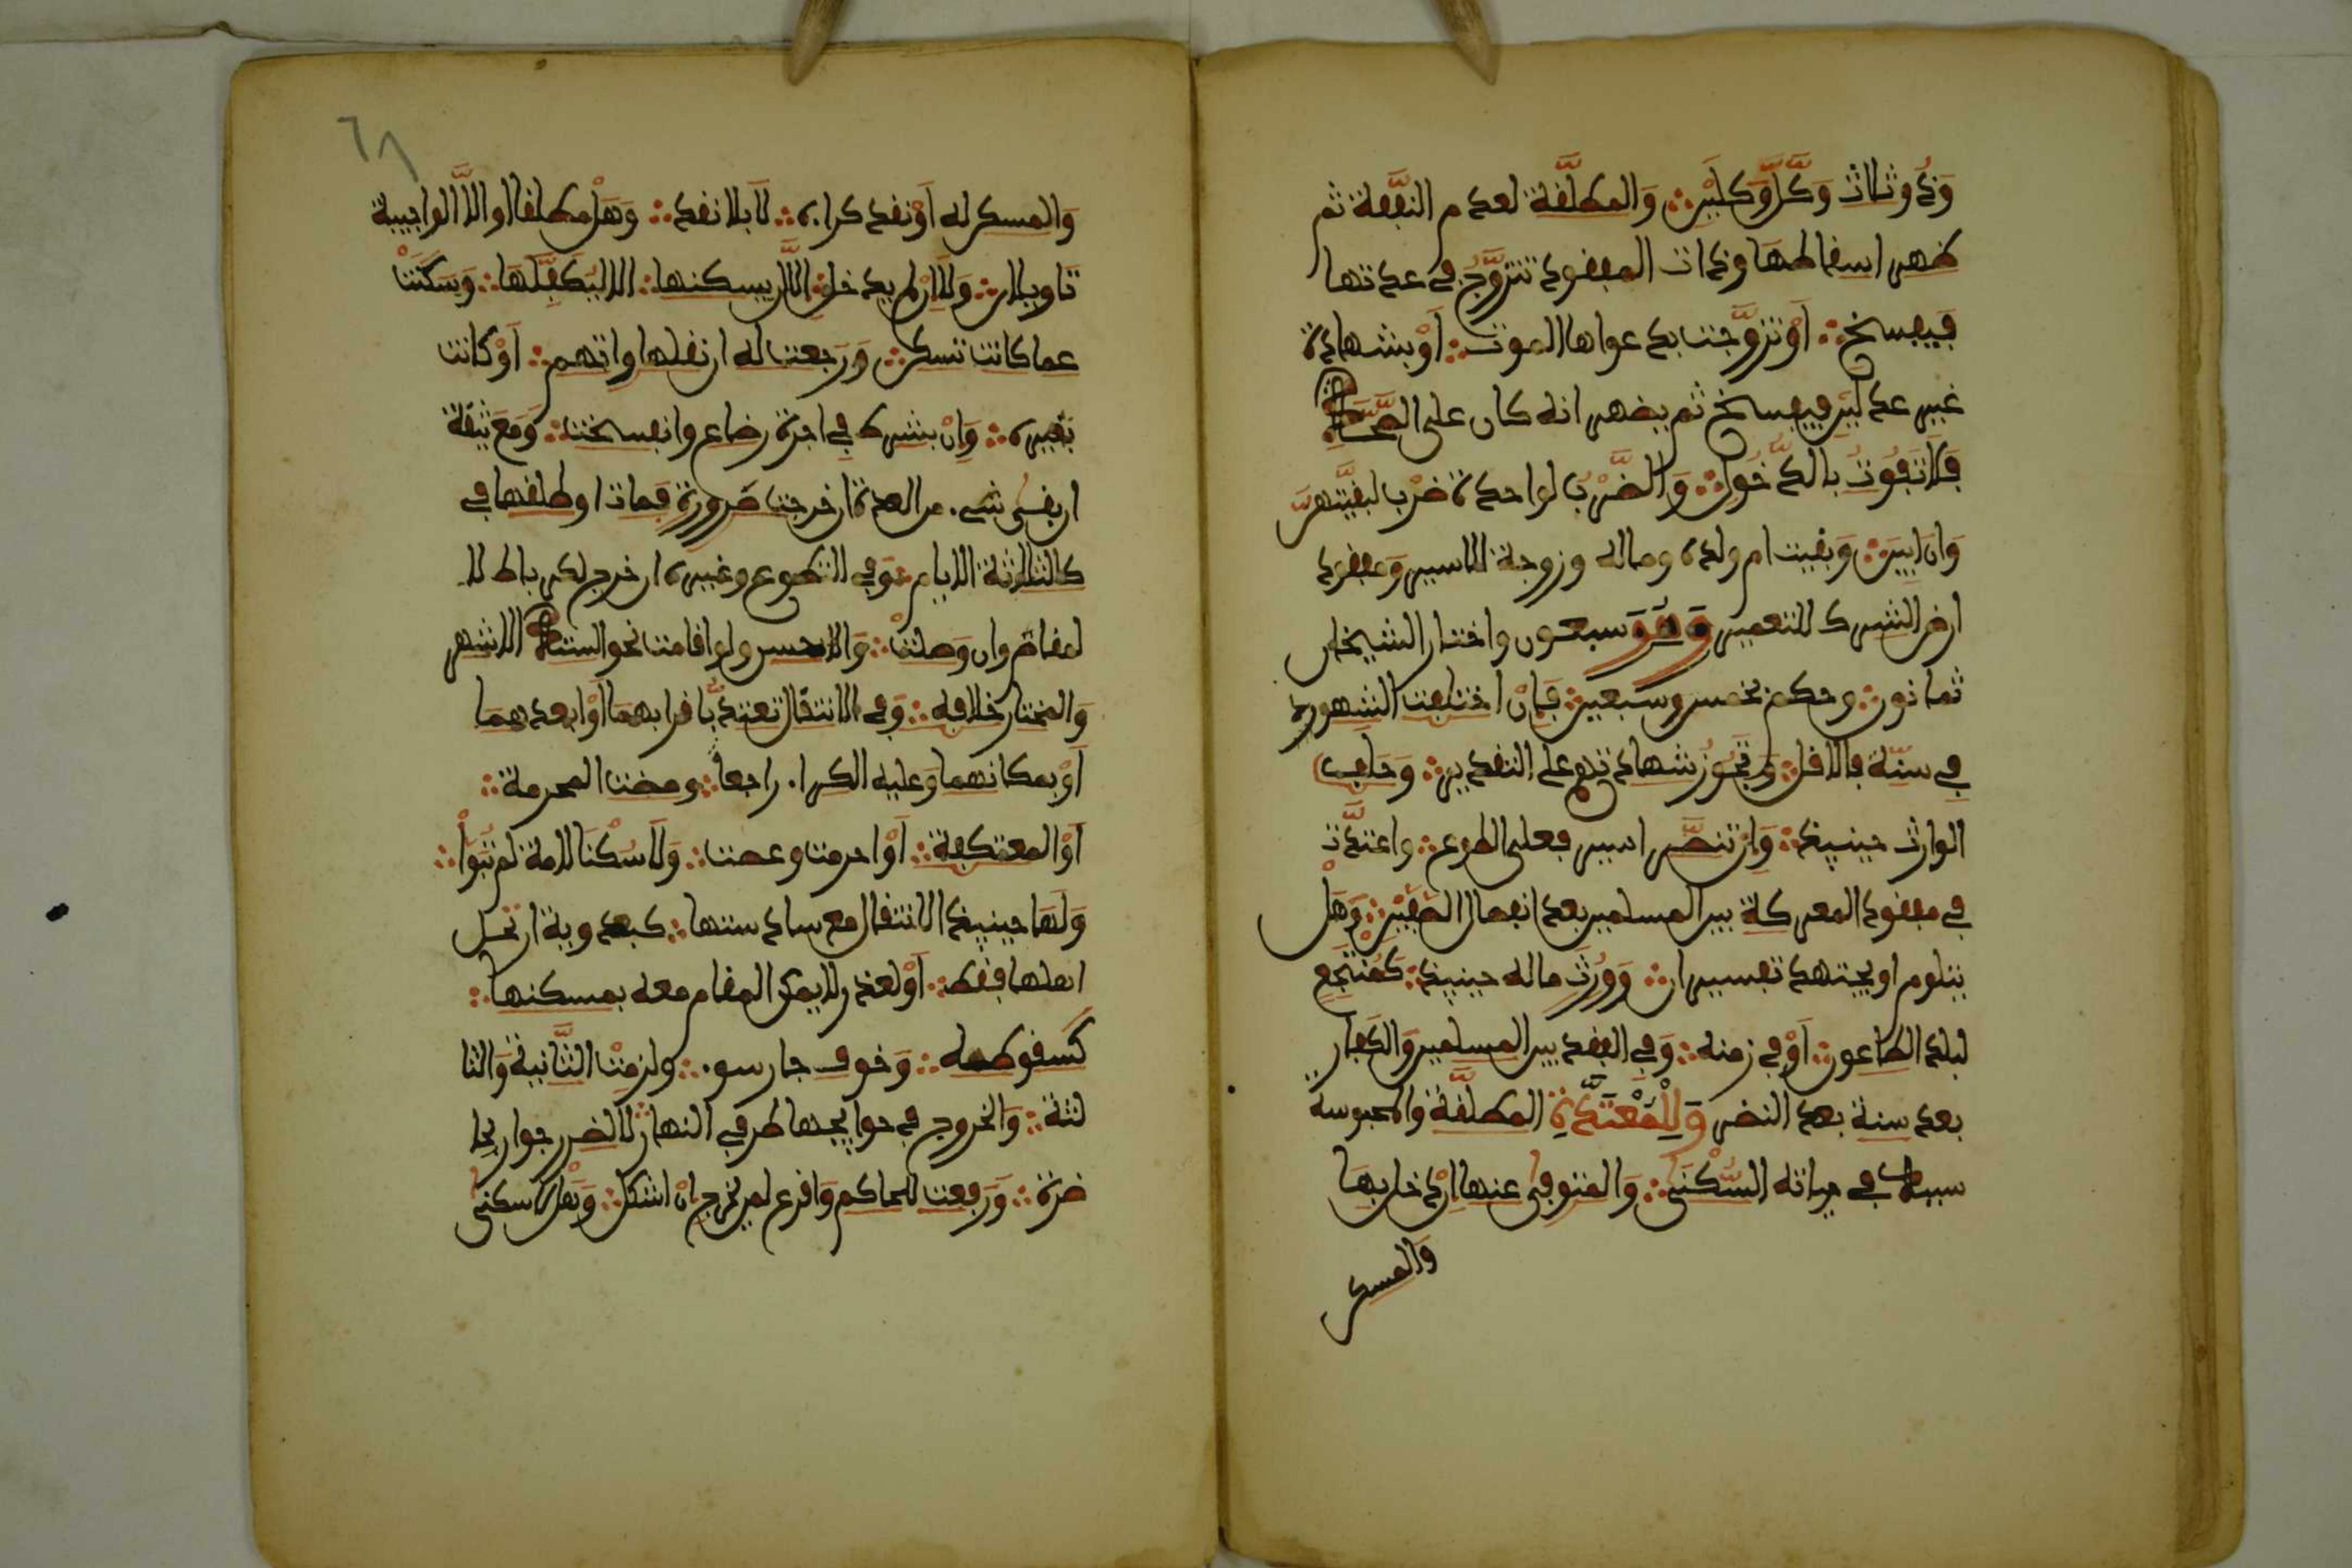 وَذُو ثلاث وَكَّلَ وَكيلَيْن وَالمطلَّقة لعدم النَّفقة ثم
ظهر اسقاطها وذات المفقود تتزوَّج في عدتها
فَيفسخ أَوْ تزوَّجت بدعواها الموت أَوْ بشهادة
غير عدلَيْن فيفسخ ثم يضهر انه كان على الصِّحَّة
فَلا تَفُوتُ بالدُّخُول وَالضَّرْبُ لواحدة ضرْب لبقيَّتهنَّ
وَان ابَيْن وَبقيت ام ولده وماله وزوجة الاسير وَمفقود
ارض الشرك للتعمير وَهُوَ سبعون واختار الشيخان
ثمانون وحكم بخمس وسبعين فَإنْ اختلفت الشهود
في سنّه فالاقل وَتجُوزُ شهادتهم على التقدير وَحلف
الوارث حينيذ وَإن تنصَّر اسير فعلى الطوع واعتدَّت
في مفقود المعركة بين المسلمين بعد انفصال الصَّفَّيْن وَهَل
يتلوم او يجتهد تفسيران وَوُرِثَ ماله حينيذ كَمُنْتَجِعٍ
لبلد الطاعون أَوْ في زمنه وَفي الفقد بين المسلمين وَالكفار
بعد سنة بعد النضر وَلِلْمُعْتَدَّةِ المطلَّقة والمحبوسة
سببه في حياته السُّكْنَى وَالمتوفى عنها إنْ دخل بهَا
وَالمسكن
وَالمسكن له أَوْ نقد كراءه لَا بلا نقد وَهَلْ مطلقا او الَّا الواجيبة
تَاويلان وَلَا إن لم يدخل إلَّا ان يسكنها الا ليَكفِّلَهَا وَسَكَنَتْ
عما كانت تسكن وَرَجعت له ان نقلها واتهم أَوْ كانت
بغيره وَإنْ بشرط في اجرة رضاع وانفسخت وَمَعَ ثِقَة
ان بقي شيء من العدة ان خرجت ضَرورة فَمات او طلقها في
كالثلاثة الايام وَفي التطوع وغيره ان خرج لكرباط لا
لمقام وان وَصلتْ وَالاحسن ولو اقامت نحو الستة الاشهر
وَالمختار خلافه وَفي الانتقال تعتدُّ باقرابهمَا أَوْ ابعدهمَا
أَوْ بمكانهما وَعليه الكراء راجعا ومضت المحرمة
أَوْ المعتكفة أَوْ احرمت وعصت وَلَا سُكْنَا لامة لم تُبَوَّأْ
وَلَهَا حينيذ الانتقال مع سادستها كبعدوية ارتحل
اهلها فقط أَوْ لعذر لا يمكن المقام معه بمسكنها
كسقوطه وَخوف جار سوء ولزمتْ الثَّانية وَالثا
لثة وَالخروج في حوايجها طرفي النهار لَا لضرر جوار بحا
ضرة وَرَفعت للحاكم وَاقرع لمن يخرج إنْ اشكل وَهَلْ لا سكنى
٦٨